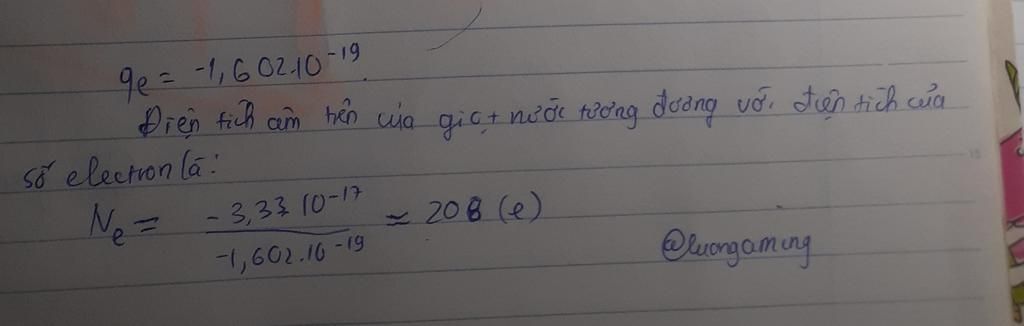 qe = -1,602.10^-19.
Điện tích âm trên của giọt nước tương đương với điện tích của
số electron là:
Ne = -3,33.10^-17 / -1,602.10^-19 ≈ 208 (e)
@luongaming